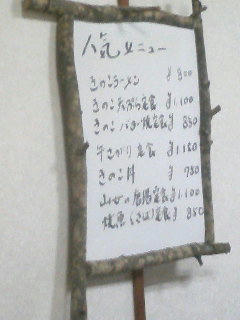 人気メニュー
きのこラーメン ¥800
きのこ天ぷら定食 ¥1,100
きのこバター焼定食 ¥850
牛さがり定食 ¥1,150
きのこ丼 ¥750
山女の唐揚定食 ¥1,100
焼魚(さば)定食 ¥850